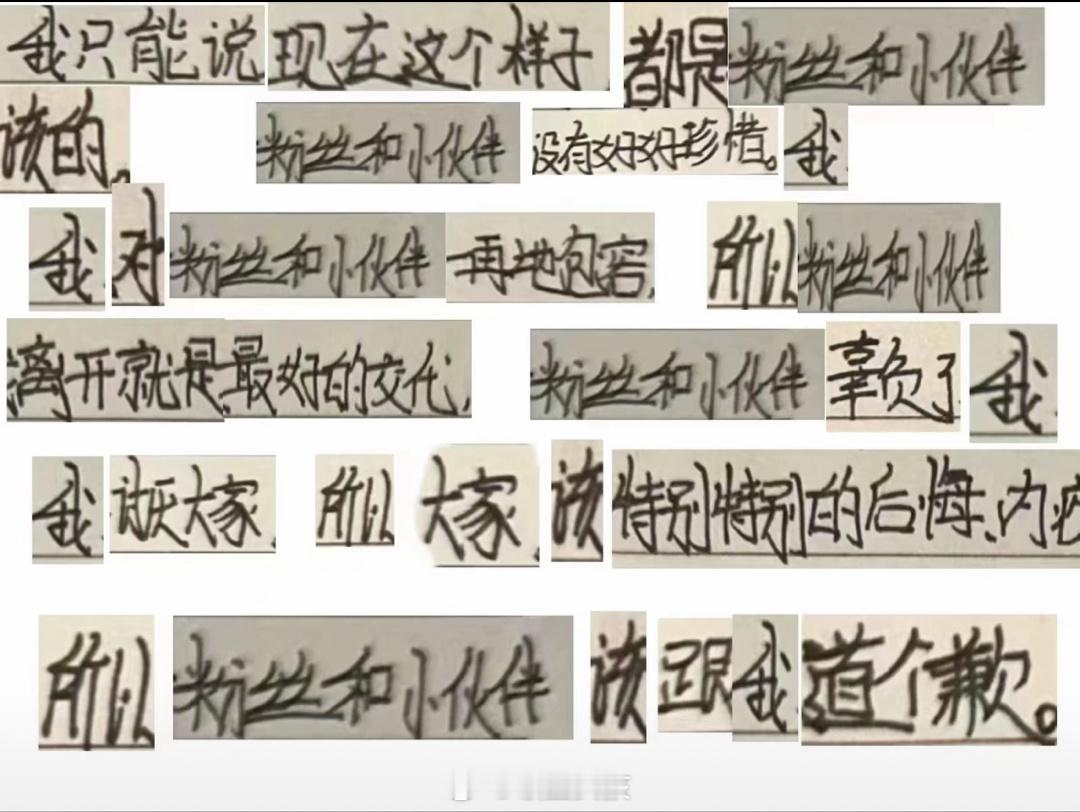 我只能说现在这个样子都是粉丝和小伙伴
该的。粉丝和小伙伴没有好好珍惜。我
我对粉丝和小伙伴一再地包容,所以粉丝和小伙伴
离开就是最好的交代,粉丝和小伙伴辜负了我
我讨厌大家所以大家,该特别特别的后悔、内疚
所以粉丝和小伙伴该跟我道个歉。